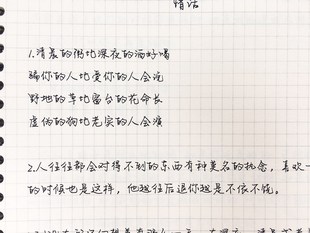 情话
1.清晨的粥比深夜的酒好喝
骗你的人比爱你的人会说
野地的草比窗台的花命长
虚伪的狗比老实的人会演
2.人往往都会对得不到的东西有种莫名的执念,喜欢一
的时候也是这样,他越往后退你越是不依不饶。